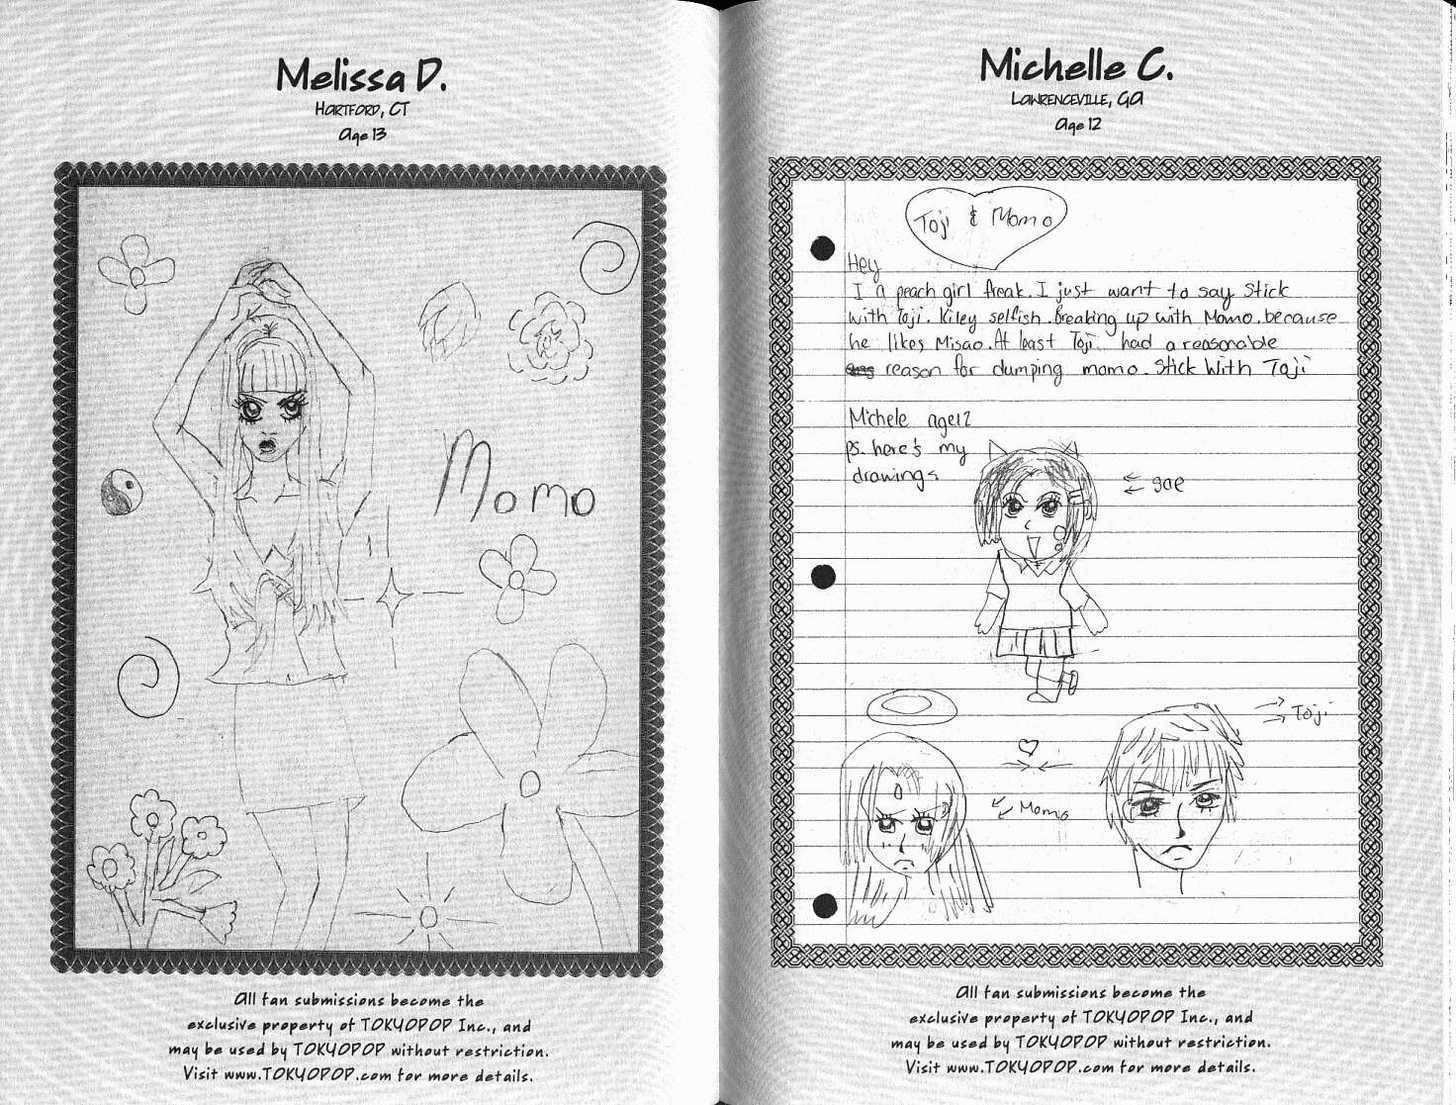 Melissa D.
Hartford, CT
Age 13
Momo
All fan submissions become the
exclusive property of TOKYOPOP Inc., and
may be used by TOKYOPOP without restriction.
Visit www.TOKYOPOP.com for more details.
Michelle C.
Lawrenceville, GA
Age 12
Toji & Momo
Hey
I a peach girl freak. I just want to say Stick
with Toji. Kiley selfish. Breaking up with Momo. because
he likes Misao. At least Toji had a reasonable
reason for dumping momo. Stick With Toji
Michele age12
ps. here's my
drawings
sae
Toji
Momo
All fan submissions become the
exclusive property of TOKYOPOP Inc., and
may be used by TOKYOPOP without restriction.
Visit www.TOKYOPOP.com for more details.